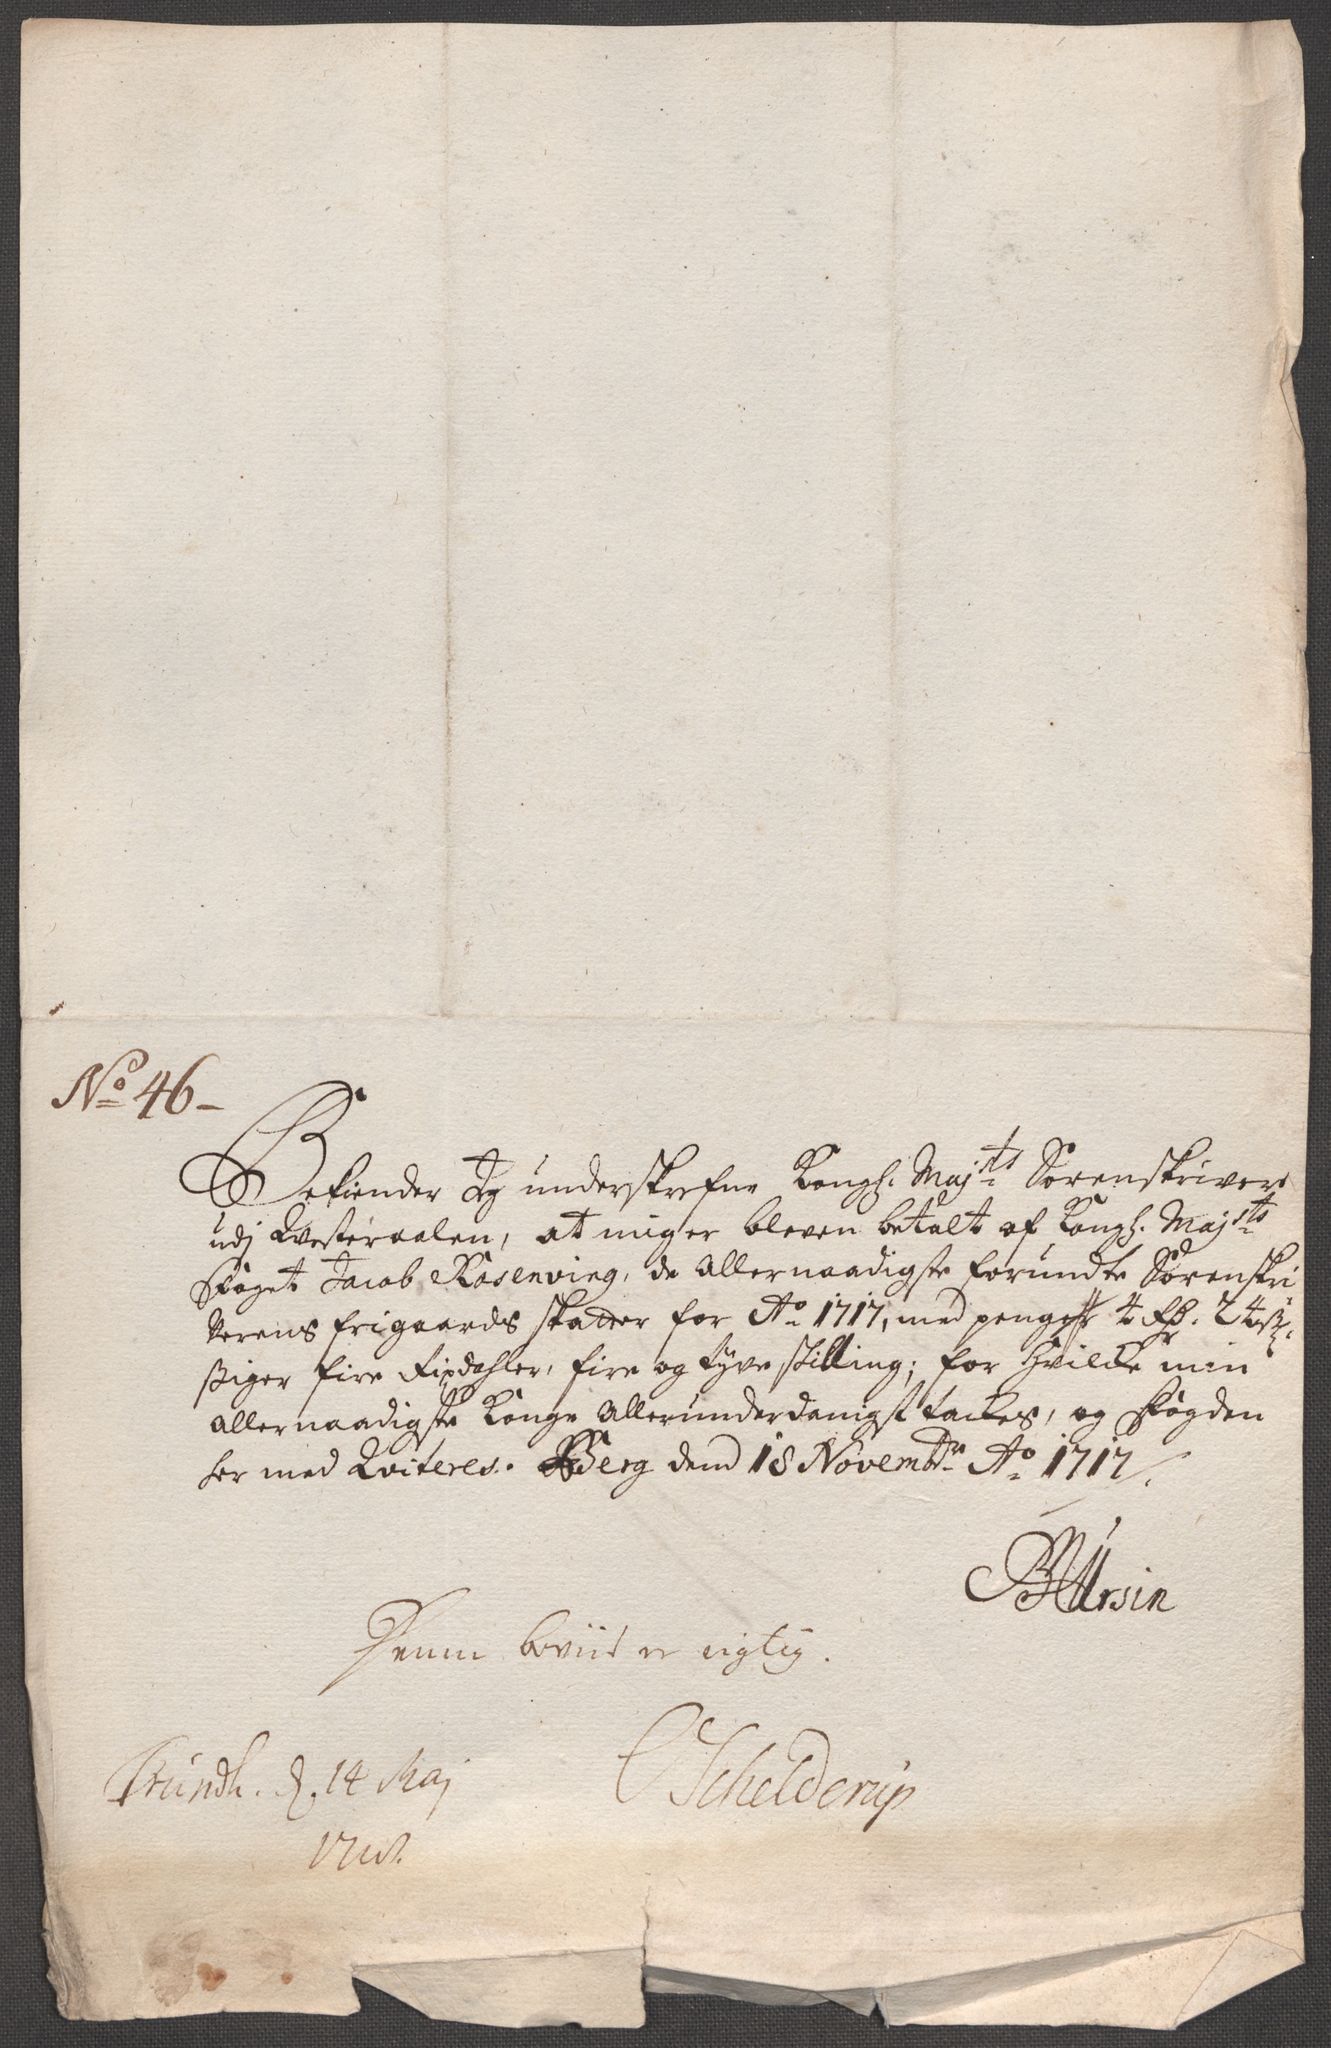 No 46 -
Bekiender Jeg underskrefne Kongl. Majts Sorenskriver
udj Westeraalen, at mig er bleven betalt af Kongl. Majsts
Foget Jacob Rosenving, de Allernaadigste forundte Sorenskri-
verens frigaards skatter for Ao 1717, med penge 4 Rdr. 24 ß,
siger fire Rixdahler, fire og tyve skilling; for hvilke min
allernaadigste Konge Allerunderdanigst tackes, og Fogden
her med Qviteres. Berg dend 18 Novembr Ao 1717 /.
Ursin
Denne beviis er rigtig.
Trundh. d. 14 Maj
Schelderup